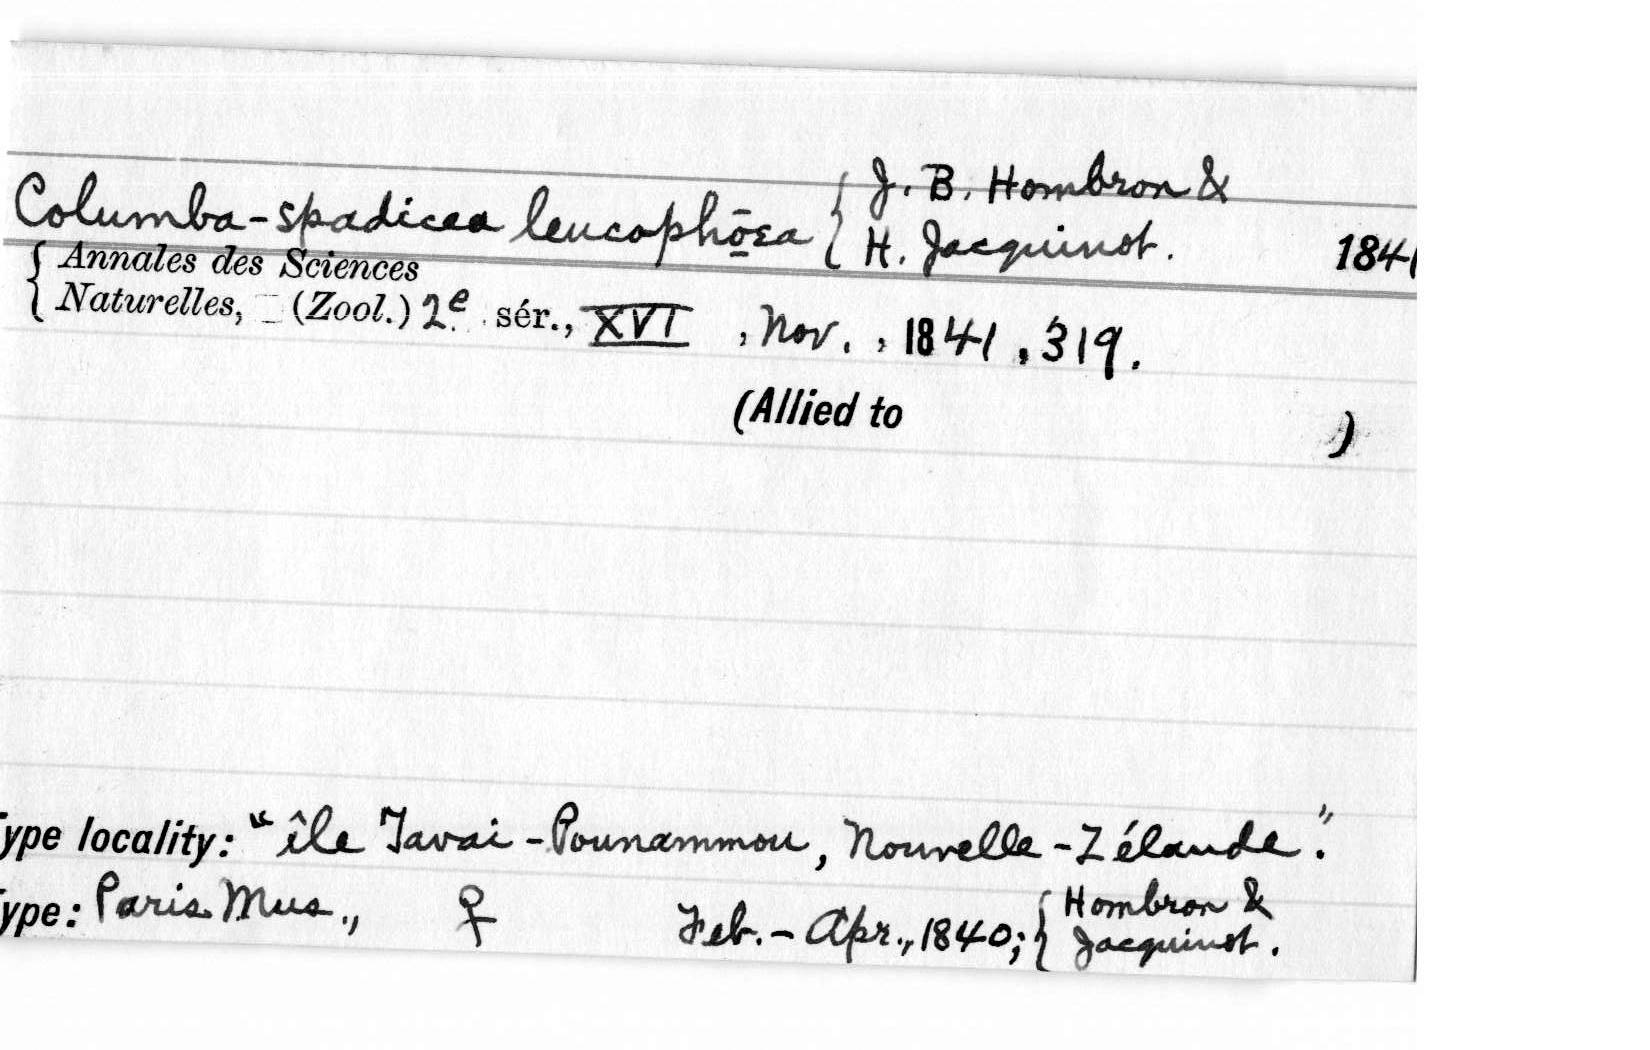 Columba-spadicea leucophōea { J. B. Hombron &
H. Jacquinot. 1841
{ Annales des Sciences
Naturelles, (Zool.) 2e sér., XVI, Nov., 1841, 319.
(Allied to )
ype locality: "île Tavai-Pounammou, Nouvelle-Zélande".
ype: Paris Mus., ♀ Feb.-Apr., 1840; { Hombron &
Jacquinot.